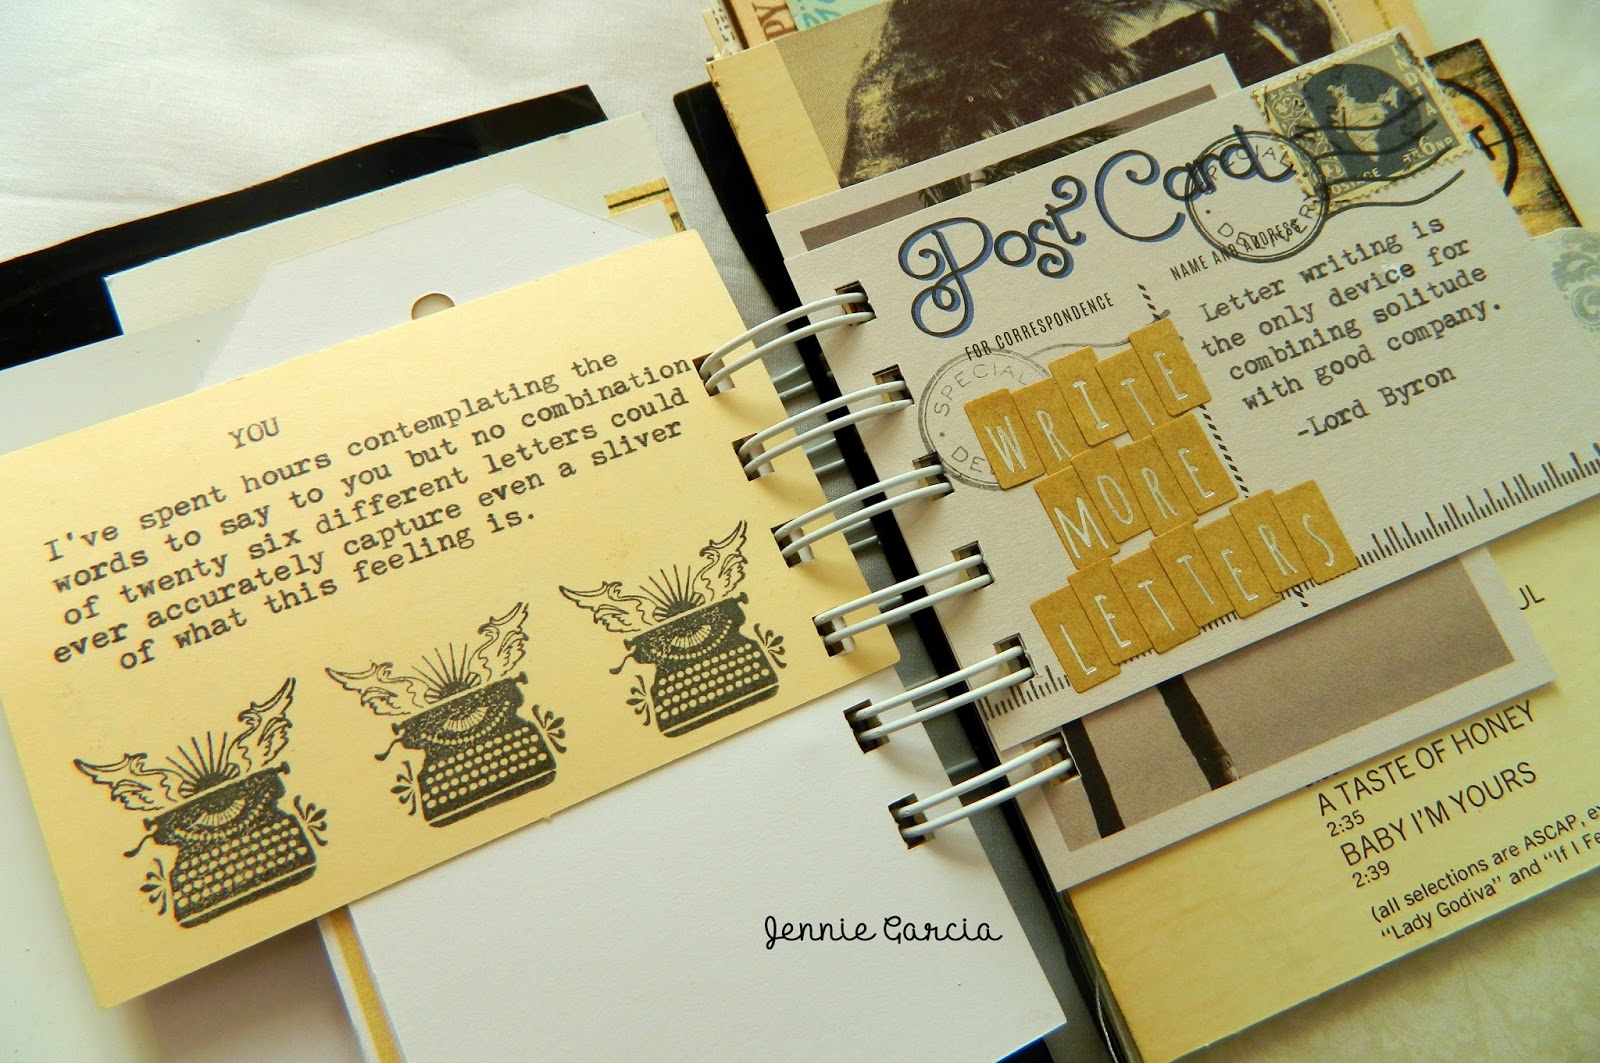 YOU
I've spent hours contemplating the
words to say to you but no combination
of twenty six different letters could
ever accurately capture even a sliver
of what this feeling is.
Post Card
SPECIAL
DELIVERY
NAME AND ADDRESS
FOR CORRESPONDENCE
Letter writing is
the only device for
combining solitude
with good company.
-Lord Byron
SPECIAL
WRITE
MORE
LETTERS
A TASTE OF HONEY
2:35
BABY I'M YOURS
2:39
(all selections are ASCAP,
"Lady Godiva" and "If I
Jennie Garcia